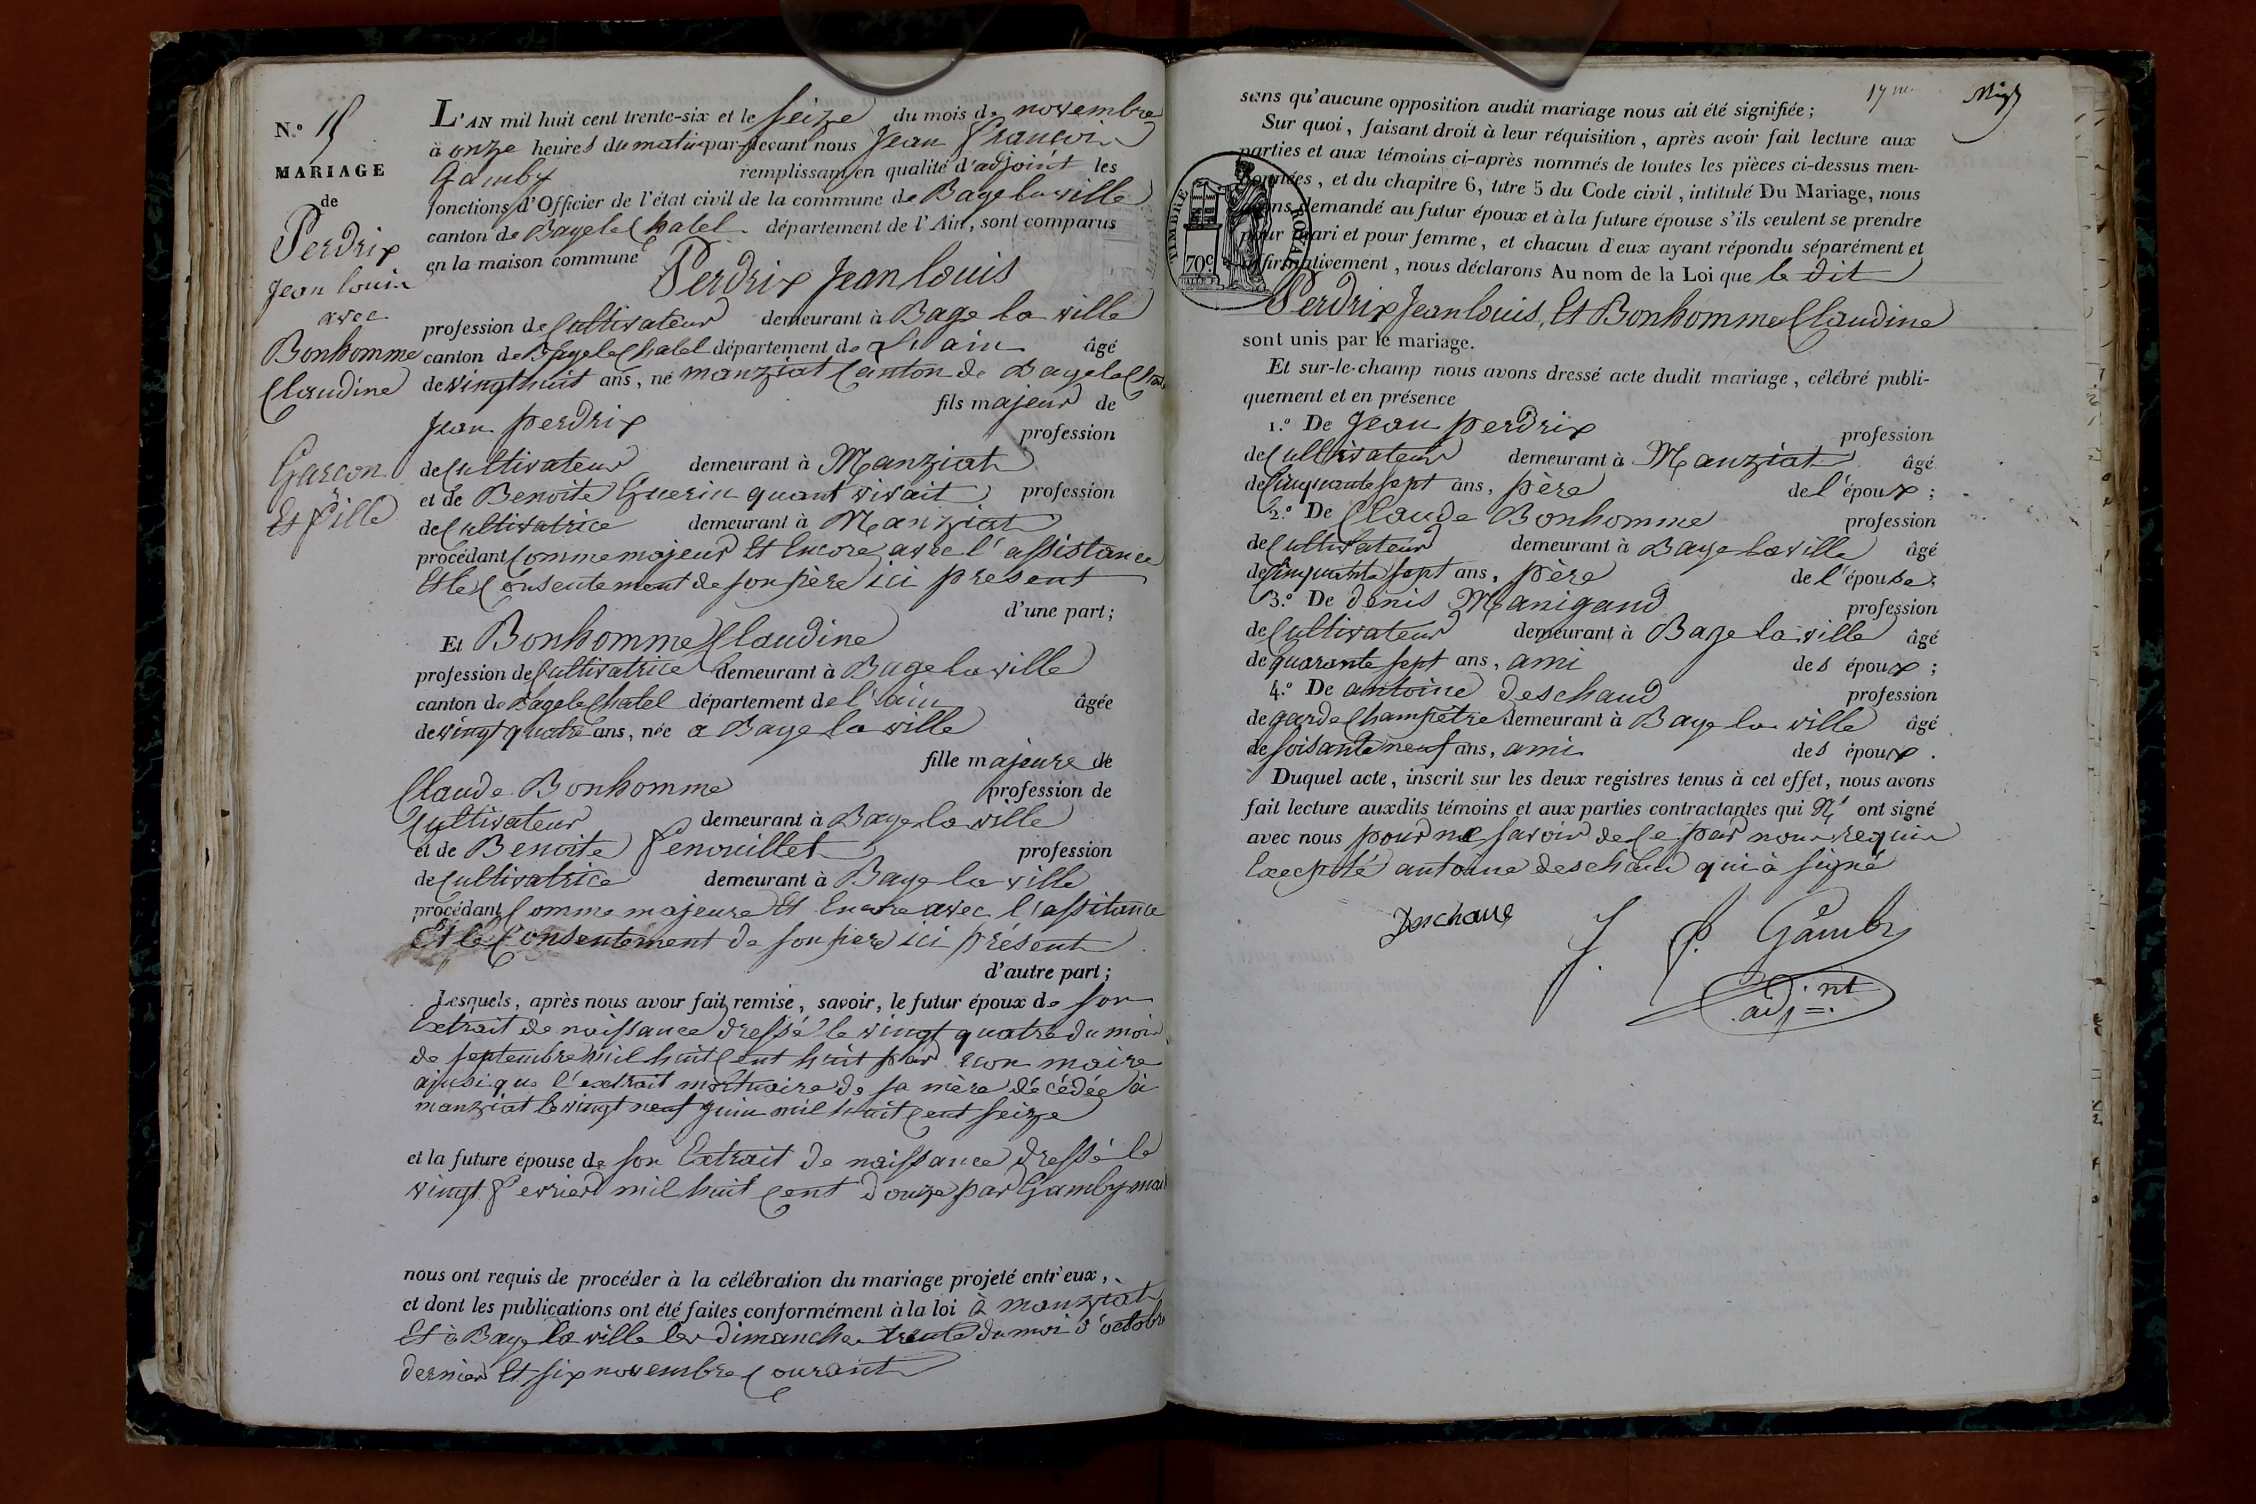 N.º 15
MARIAGE
de
Perdrix
Jean louis
avec
Bonhomme
Claudine
Garcon
Et fille
L'AN mil huit cent trente-six et le seize du mois de novembre
à onze heures du matin par-devant nous Jean francois
Gamby remplissant en qualité d'adjoint les
fonctions d'Officier de l'état civil de la commune de Bage la ville
canton de Bage le Chatel département de l'Ain, sont comparus
en la maison commune Perdrix Jean louis
profession de Cultivateur demeurant à Bage la ville
canton de Bage le Chatel département de L'ain âgé
de vingt huit ans, né manziat Canton de Bage le Chatel
fils majeur de
Jean perdrix profession
de Cultivateur demeurant à Manziat
et de Benoite Guerin quant vivait profession
de Cultivatrice demeurant à Manziat
procédant Comme majeur Et Encore avec l'assistance
Et le Consentement de son père ici present
d'une part;
Et Bonhomme Claudine
profession de Cultivatrice demeurant à Bage la ville
canton de Bage le Chatel département de l'ain âgée
de vingt quatre ans, née a Bage la ville
fille majeure de
Claude Bonhomme profession de
Cultivateur demeurant à Bage la ville
et de Benoite fenouillet profession
de Cultivatrice demeurant à Bage la ville
procédant Comme majeure Et Encore avec l'assitance
Et le Consentement de son pere ici présent
d'autre part;
Lesquels, après nous avoir fait remise, savoir, le futur époux de son
Extrait de naissance dressé le vingt quatre du mois
de septembre mil huit Cent huit par maire
ainsi que l'extrait mortuaire de sa mère décédée à
manziat le vingt neuf juin mil huit Cent seize
et la future épouse de son Extrait de naissance dressé le
vingt fevrier mil huit Cent douze par Gamby mai
nous ont requis de procéder à la célébration du mariage projeté entr'eux,
et dont les publications ont été faites conformément à la loi à manziat
Et à Bage la ville les dimanches trente du moi d'octobre
dernier Et six novembre Courant
17me
sans qu'aucune opposition audit mariage nous ait été signifiée;
Sur quoi, faisant droit à leur réquisition, après avoir fait lecture aux
parties et aux témoins ci-après nommés de toutes les pièces ci-dessus men-
tionnées, et du chapitre 6, titre 5 du Code civil, intitulé Du Mariage, nous
avons demandé au futur époux et à la future épouse s'ils veulent se prendre
pour mari et pour femme, et chacun d'eux ayant répondu séparément et
affirmativement, nous déclarons Au nom de la Loi que le dit
TIMBRE ROYAL
70c
Perdrix Jean louis, Et Bonhomme Claudine
sont unis par le mariage.
Et sur-le-champ nous avons dressé acte dudit mariage, célébré publi-
quement et en présence
1.º De Jean perdrix profession
de Cultivateur demeurant à Manziat âgé
de Cinquante sept ans, père de l'époux;
2.º De Claude Bonhomme profession
de Cultivateur demeurant à Bage la ville âgé
de Cinquante sept ans, père de l'épouse;
3.º De denis Manigand profession
de Cultivateur demeurant à Bage la ville âgé
de quarante sept ans, ami des époux;
4.º De antoine deschaud profession
de garde Champetre demeurant à Bage la ville âgé
de soisante neuf ans, ami des époux.
Duquel acte, inscrit sur les deux registres tenus à cet effet, nous avons
fait lecture auxdits témoins et aux parties contractantes qui ont signé
avec nous pour ne savoir de Ce par nous requis
Excepté antoine deschaud qui à signé
Deschaud
J. f. Gamby
adj.nt